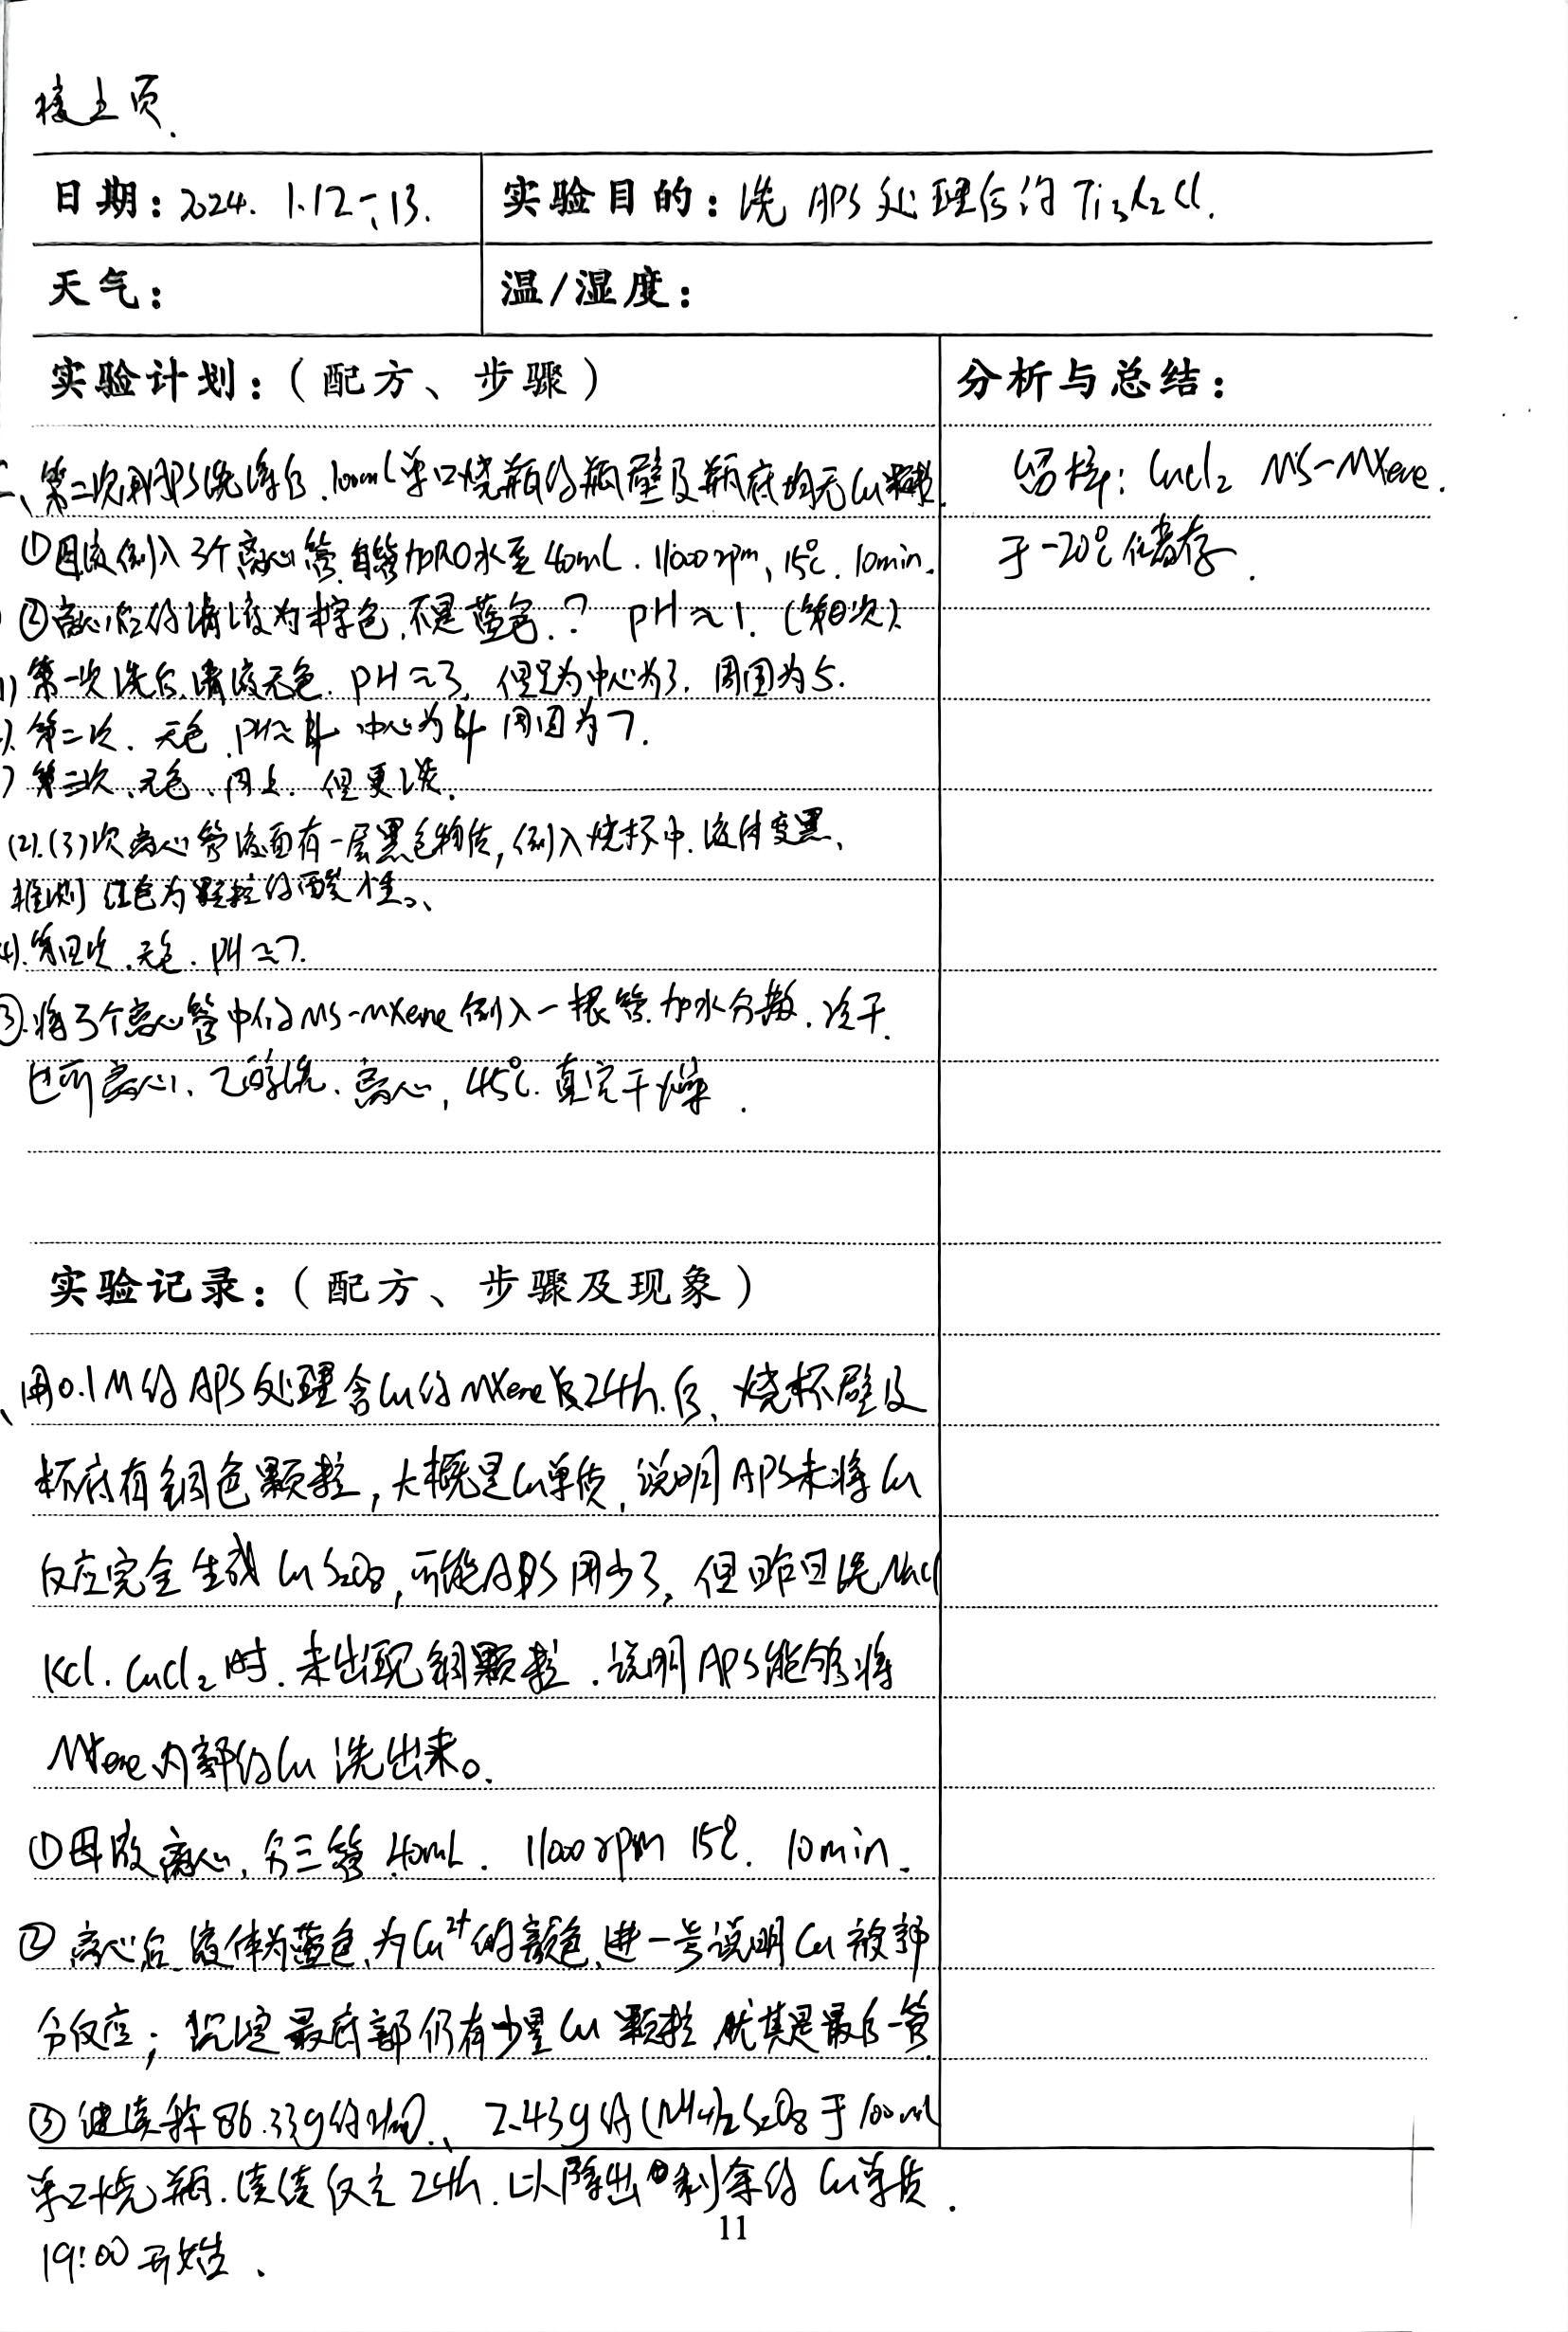 接上页.
日期：2024. 1.12-13.
实验目的：洗 APS 处理后的 Ti3C2Cl.
天气：
温/湿度：
实验计划：（配方、步骤）
分析与总结：
二、第二次用APS洗涤后.100ml单口烧瓶的瓶壁及瓶底均无Cu颗粒.
留样：CuCl2 MS-MXene.
①固液倒入3个离心管.每管加RO水至40mL. 11000rpm, 15℃. 10min.
于-20℃储存.
②离心后的清液为棕色.不是蓝色.？ pH≈1.
(1)第一次洗后.清液无色. PH≈3, 但是为中心为3. 周围为5.
第二次. 无色. PH≈4 中心为4 周围为7.
第三次.无色.同上. 但更浅.
(2).(3)次离心管液面有一层黑色物质,倒入烧杯中.液体变黑、
推测 红色为颗粒的酸性。、
4).第四次.无色. PH≈7.
③.将3个离心管中的MS-MXene倒入一根管.加水分散.冷干.
离心、乙醇洗.离心, 45℃.真空干燥.
实验记录：（配方、步骤及现象）
、用0.1M的APS处理含Cu的MXene 24h.后、烧杯壁及
杯底有铜色颗粒,大概是Cu单质,说明APS未将Cu
反应完全生成CuS2O8,可能APS用少了,但昨日洗NaCl
KCl.CuCl2时.未出现铜颗粒.说明APS能够将
MXene内部的Cu洗出来。
①固液离心,分三管.40mL. 11000rpm 15℃. 10min.
②离心后.液体为蓝色,为Cu2+的颜色,进一步说明Cu被部
分反应；沉淀最底部仍有少量Cu颗粒.尤其是最后一管.
③继续称86.33g的H2O、2.43g的(NH4)2S2O8于100ml
单口烧瓶.继续反应24h.以除出剩余的Cu单质.
11
19:00开始.